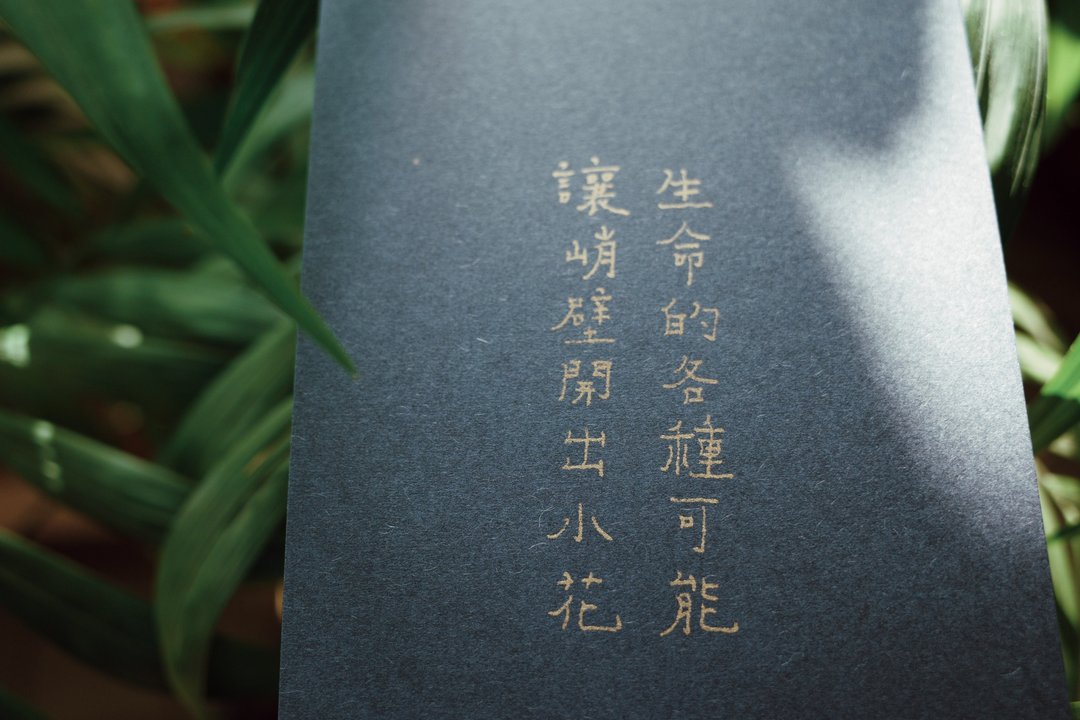 生命的各種可能
讓峭壁開出小花